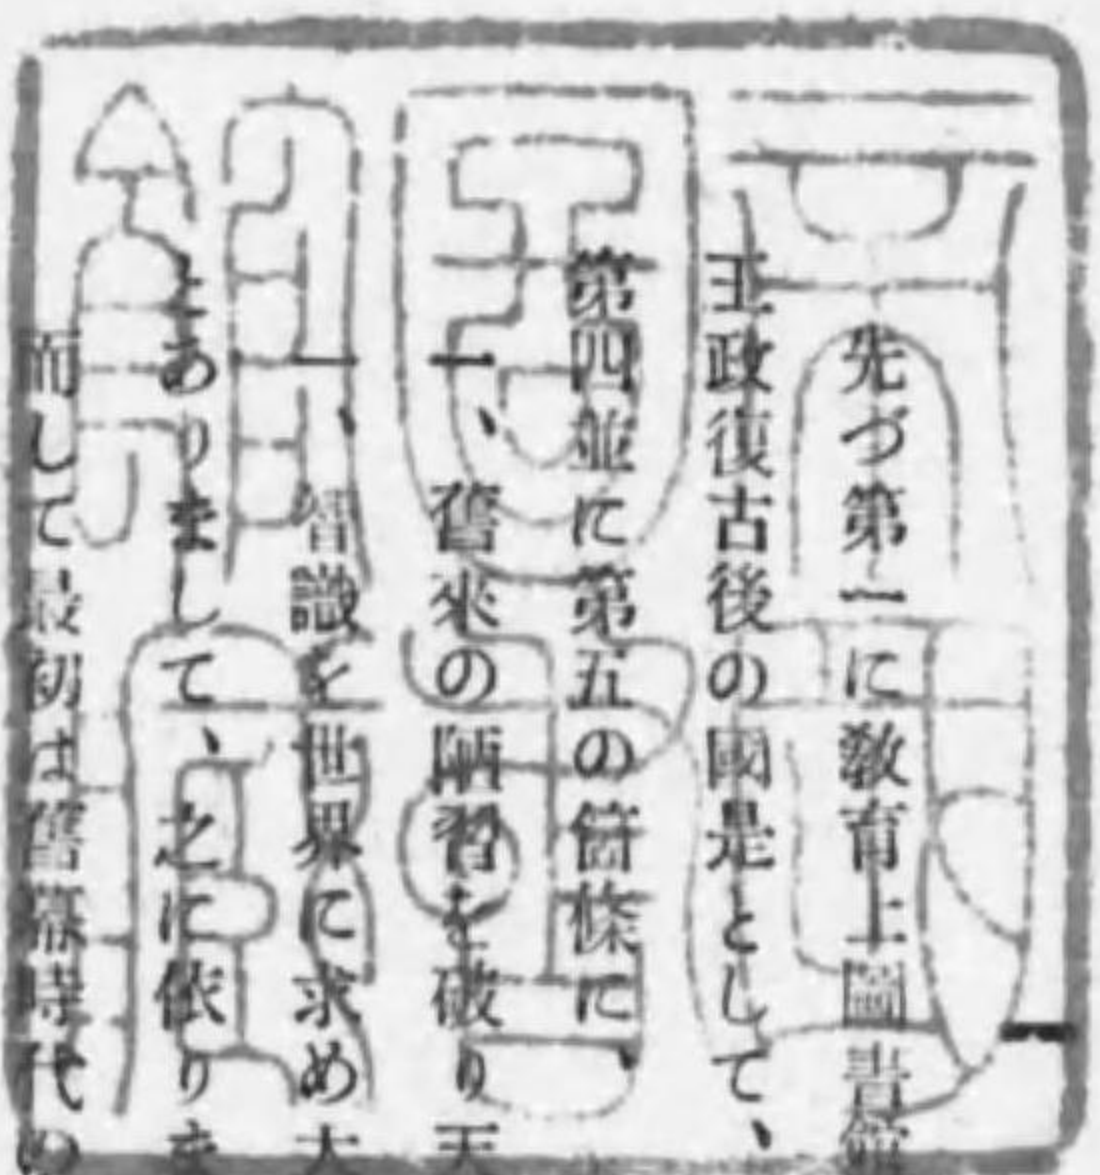 先づ第一に敎育上圖書館
王政復古後の國是として、
第四並に第五の箇條に、
一、舊來の陋習を破り天
一、智識を世界に求め大
とありまして、之に依りま
而して最初は舊幕時代の